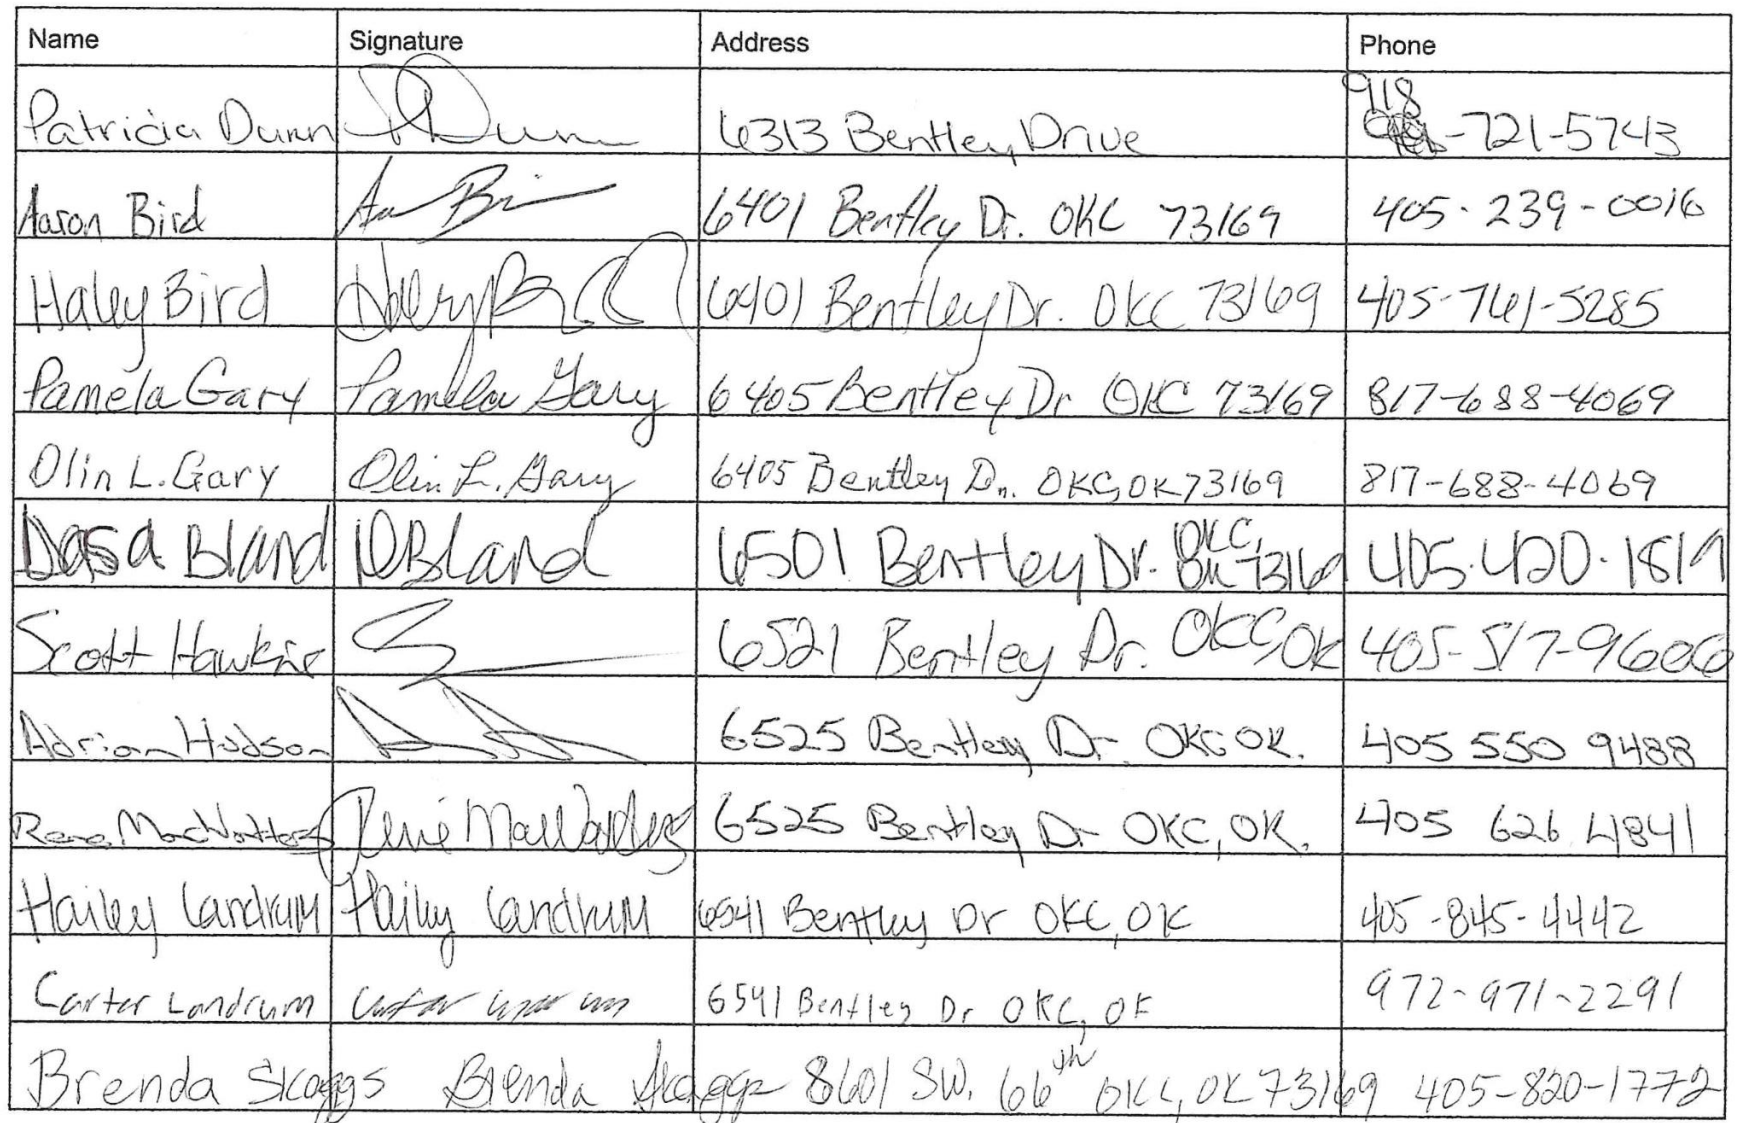 Name Signature Address Phone
Patricia Dunn P Dunn 6313 Bentley Drive 918-721-5743
Aaron Bird 6401 Bentley Dr. OKC 73169 405-239-0016
Haley Bird Haley Bird 6401 Bentley Dr. OKC 73169 405-761-5285
Pamela Gary Pamela Gary 6405 Bentley Dr OKC 73169 817-688-4069
Olin L. Gary Olin L. Gary 6405 Bentley Dr. OKC, OK 73169 817-688-4069
Dasa Bland DBland 6501 Bentley Dr. OKC, OK 73169 405.420.1819
Scott Hawkins 6521 Bentley Dr. OKC, OK 405-517-9606
Adrian Hudson 6525 Bentley Dr OKC OK. 405 550 9488
Rene 6525 Bentley Dr OKC, OK. 405 626 4841
Hailey Landrum Hailey Landrum 6541 Bentley Dr OKC, OK 405-845-4442
Carter Landrum 6541 Bentley Dr OKC, OK 972-971-2291
Brenda Skaggs Brenda Skaggs 8601 SW. 66th OKC, OK 73169 405-820-1772